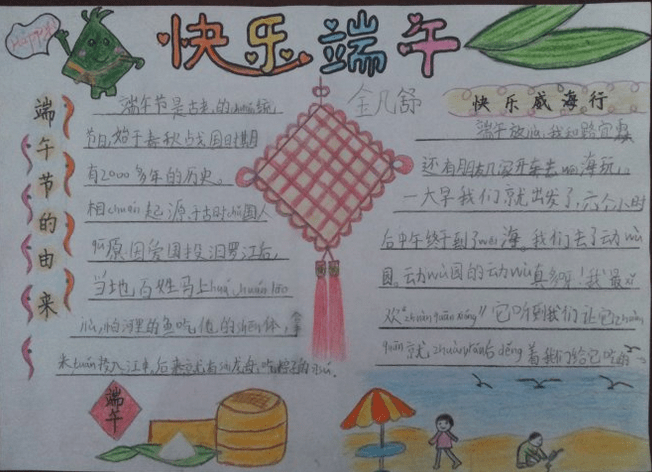 Happy
快乐端午
金凡舒
端午节的由来
端午节是古老的chuán统
节日,始于春秋战国时期
有2000多年的历史。
相chuán起源于古时候国人
qū原因爱国投汨罗江后,
当地百姓马上huá chuán lāo
jiù,怕河里的鱼吃他的shēn体,拿
米tuán投入江中,后来就有
端午
快乐威海行
端午放假,我和
还有朋友几家开车去wēi海玩。
一大早我们就出发了,六个小时
后中午终于到了wēi海。我们去了动wù
园。动wù园的动wù真多呀!我最xǐ
欢"zhuàn quān xióng"它听到我们让它zhuàn
quān就zhuàn wán后děng着我们给它吃的